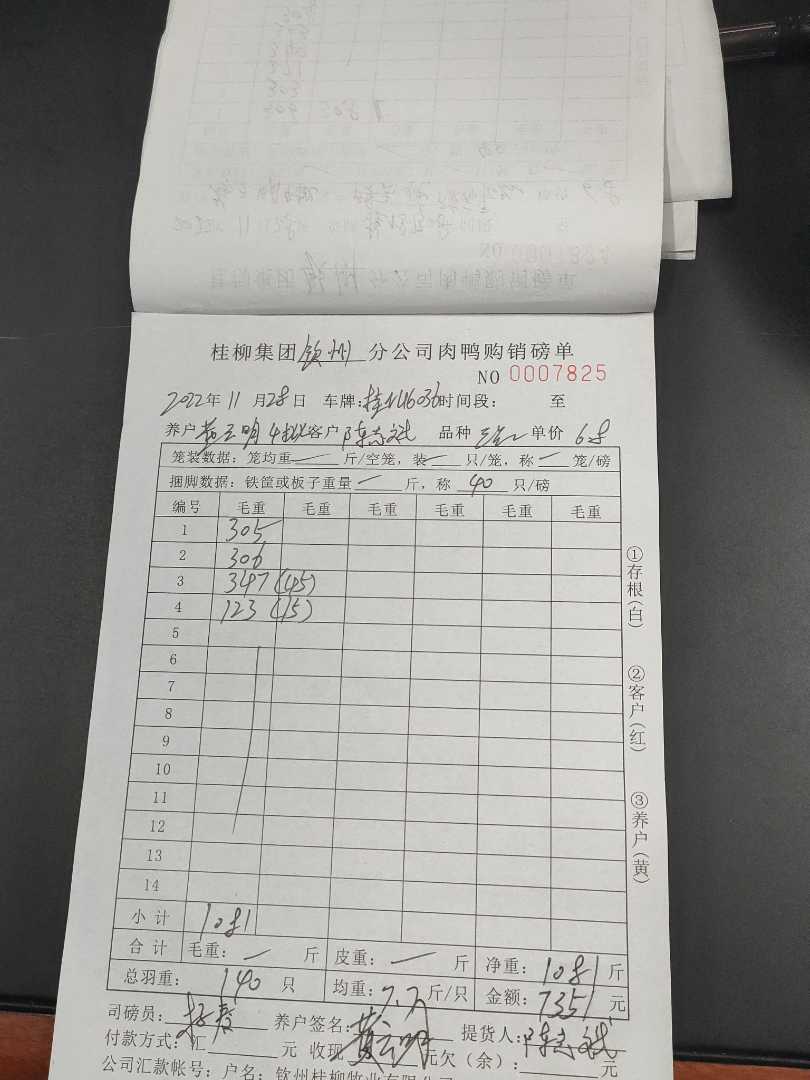 桂柳集团 钦州 分公司肉鸭购销磅单
NO 0007825
2022年 11 月 28日 车牌: 时间段: 至
养户 黄云明 4批 客户 陈志斌 品种 单价 6.8
笼装数据: 笼均重 — 斤/空笼, 装 — 只/笼, 称 — 笼/磅
捆脚数据: 铁筐或板子重量 — 斤, 称 40 只/磅
编号 毛重 毛重 毛重 毛重 毛重 毛重
1 305
2 306
3 347 (45)
4 123 (15)
5
6
7
8
9
10
11
12
13
14
小 计 1081
合 计 毛重: — 斤 皮重: — 斤 净重: 1081 斤
总羽重: 140 只 均重: 7.7 斤/只 金额: 7351 元
司磅员: 养户签名: 黄云明 提货人: 陈志斌
付款方式: 汇 元 收现 元欠(余): 元
公司汇款帐号: 户名: 钦州桂柳牧业有限公司
①存根(白)
②客户(红)
③养户(黄)